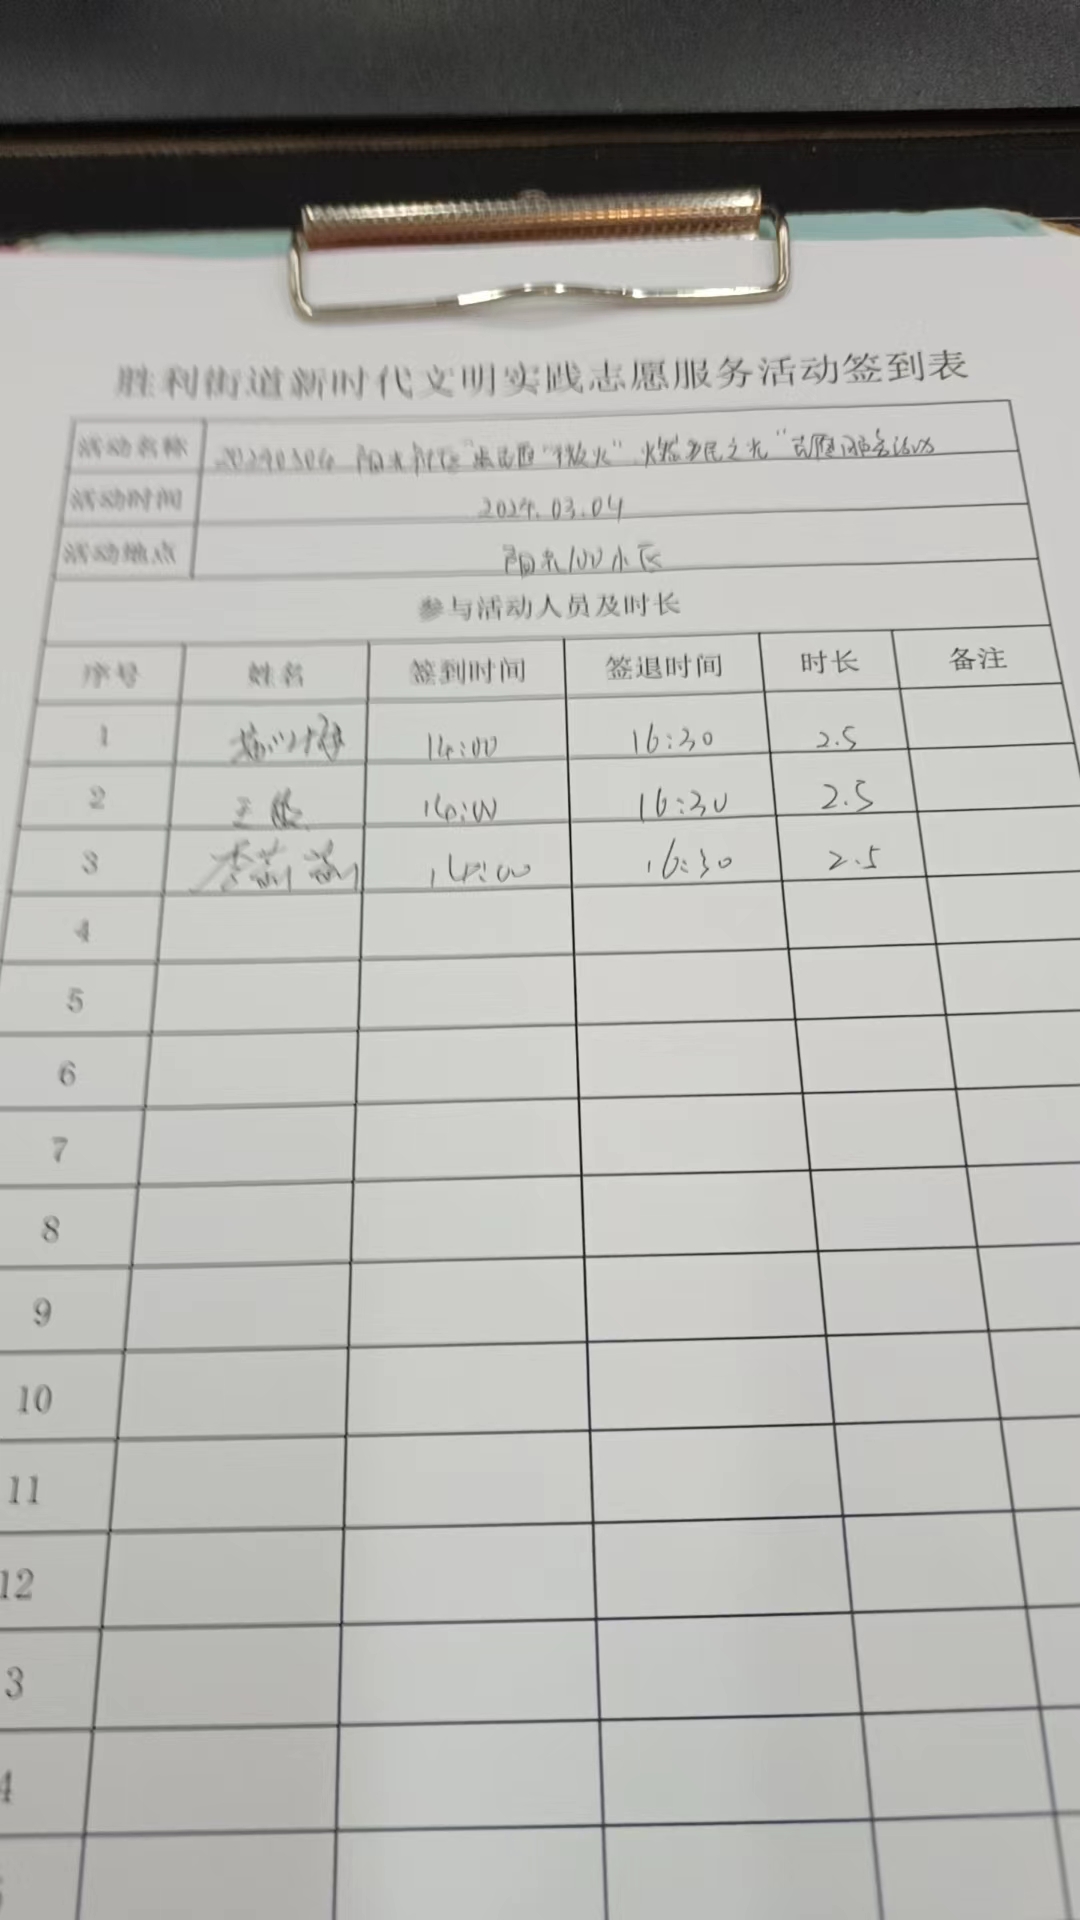 胜利街道新时代文明实践志愿服务活动签到表
活动名称 20240304 阳光社区“点志愿“微火” 燃为民之光”志愿服务活动
活动时间 2024.03.04
活动地点 阳光100小区
参与活动人员及时长
序号 姓名 签到时间 签退时间 时长 备注
1 14:00 16:30 2.5
2 王 14:00 16:30 2.5
3 李莉莉 14:00 16:30 2.5
4
5
6
7
8
9
10
11
12
3
4